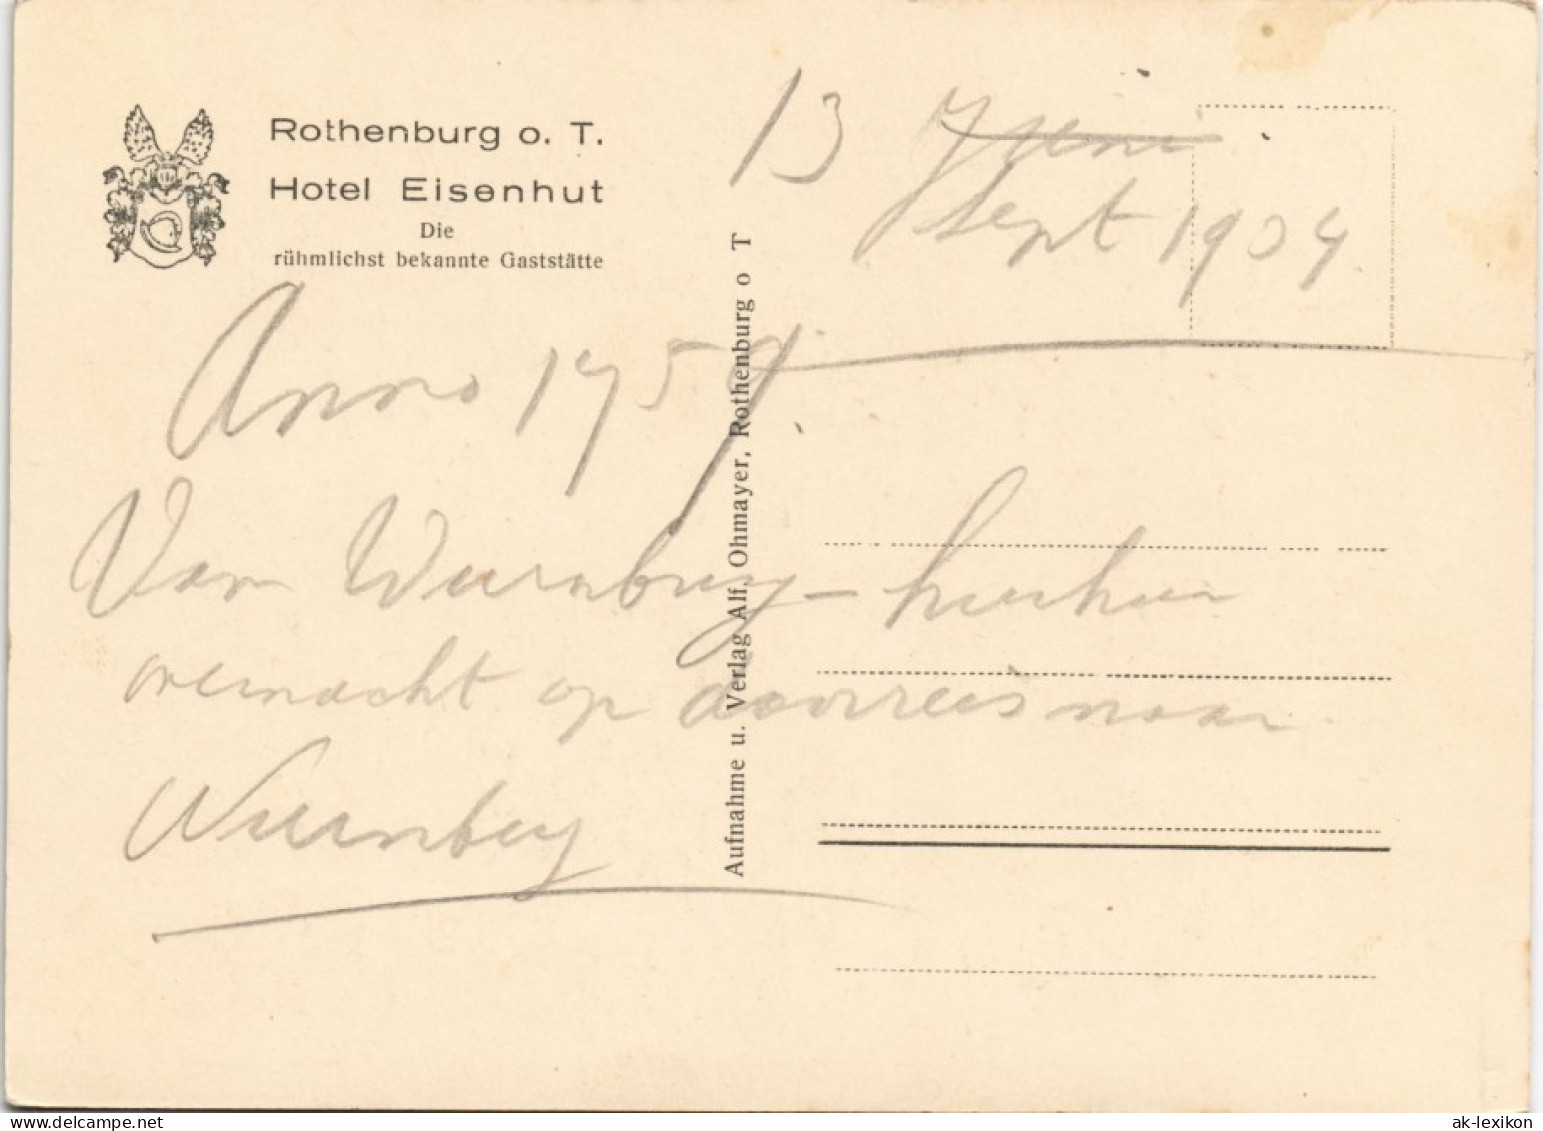 Rothenburg o. T.
Hotel Eisenhut
Die
rühmlichst bekannte Gaststätte
13 Juni
Sept 1904
Anno 1959.
Van Wurnburg - hierheen
overnacht op doorreis naar
Wurnburg
Aufnahme u. Verlag Alf. Ohmayer, Rothenburg o T
ak-lexikon